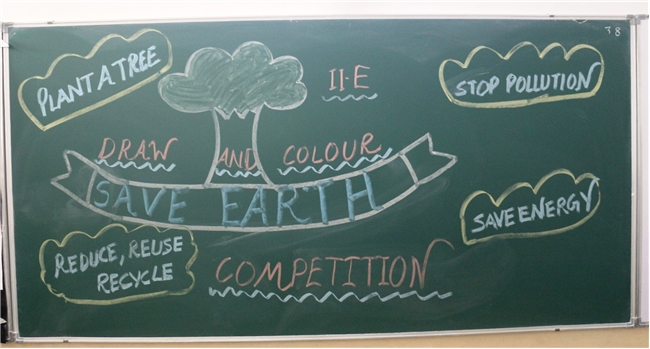 38
PLANT A TREE
II-E
STOP POLLUTION
DRAW AND COLOUR
SAVE EARTH
SAVE ENERGY
REDUCE, REUSE
RECYCLE
COMPETITION